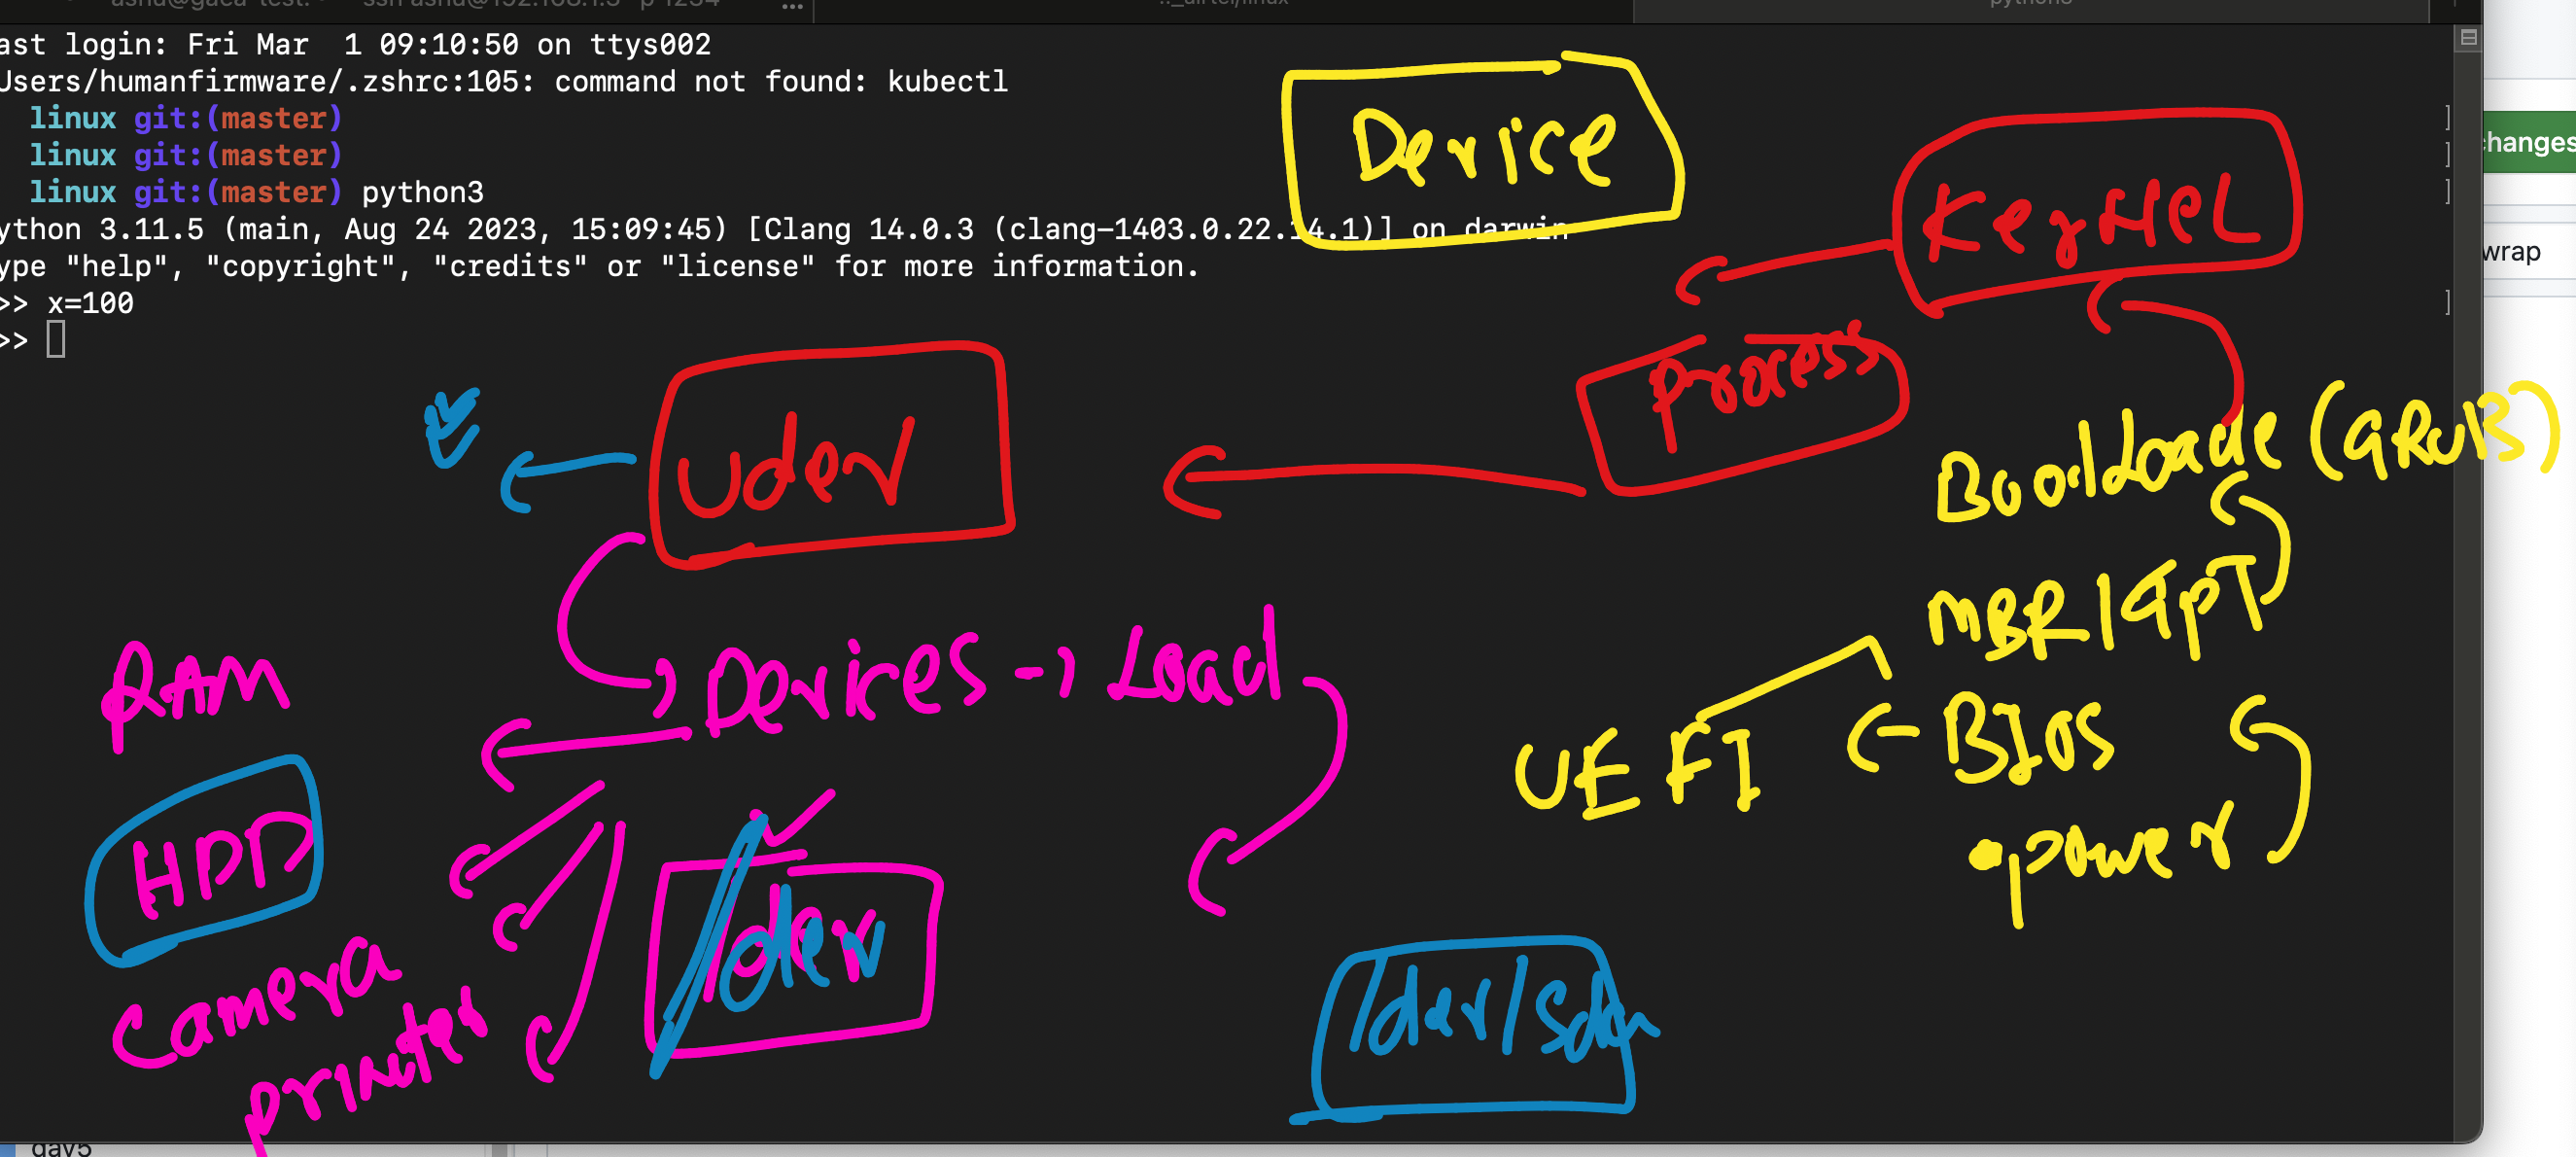 ashu@gaca-test: ssh ashu@192.168.1.3 -p 1234 ... .._airtel/linux python3
ast login: Fri Mar  1 09:10:50 on ttys002
Users/humanfirmware/.zshrc:105: command not found: kubectl
linux git:(master)
linux git:(master)
linux git:(master) python3
ython 3.11.5 (main, Aug 24 2023, 15:09:45) [Clang 14.0.3 (clang-1403.0.22.14.1)] on darwin
ype "help", "copyright", "credits" or "license" for more information.
>> x=100
>>
hanges
wrap
Device
KerNeL
Process
Udev
BootLoade (GRUB)
MBR/GPT
UEFI
BIOS
power
Devices -> Load
RAM
HDD
Camera
printer
/dev
/dev/sda
day5